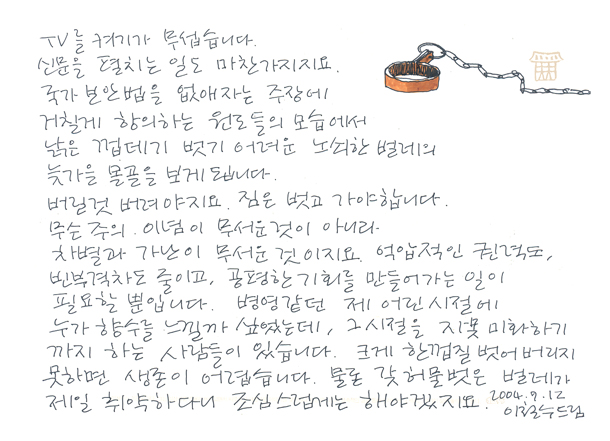 TV를 켜기가 무섭습니다.
신문을 펼치는 일도 마찬가지지요.
국가보안법을 없애자는 주장에
거칠게 항의하는 원로들의 모습에서
낡은 껍데기 벗기 어려운 노쇠한 벌레의
늦가을 몰골을 보게 됩니다.
버릴것 버려야지요. 짐은 벗고 가야합니다.
무슨 주의. 이념이 무서운것이 아니라
차별과 가난이 무서운 것이지요. 억압적인 권력도,
빈부격차도 줄이고, 공평한 기회를 만들어가는 일이
필요할 뿐입니다. 병영같던 제 어린시절에
누가 향수를 느낄까 싶었는데, 그시절을 자못 미화하기
까지 하는 사람들이 있습니다. 크게 한껍질 벗어버리지
못하면 생존이 어렵습니다. 물론 갓 허물벗은 벌레가
제일 취약하다니 조심스럽게는 해야겠지요. 2004.9.12
이철수드림